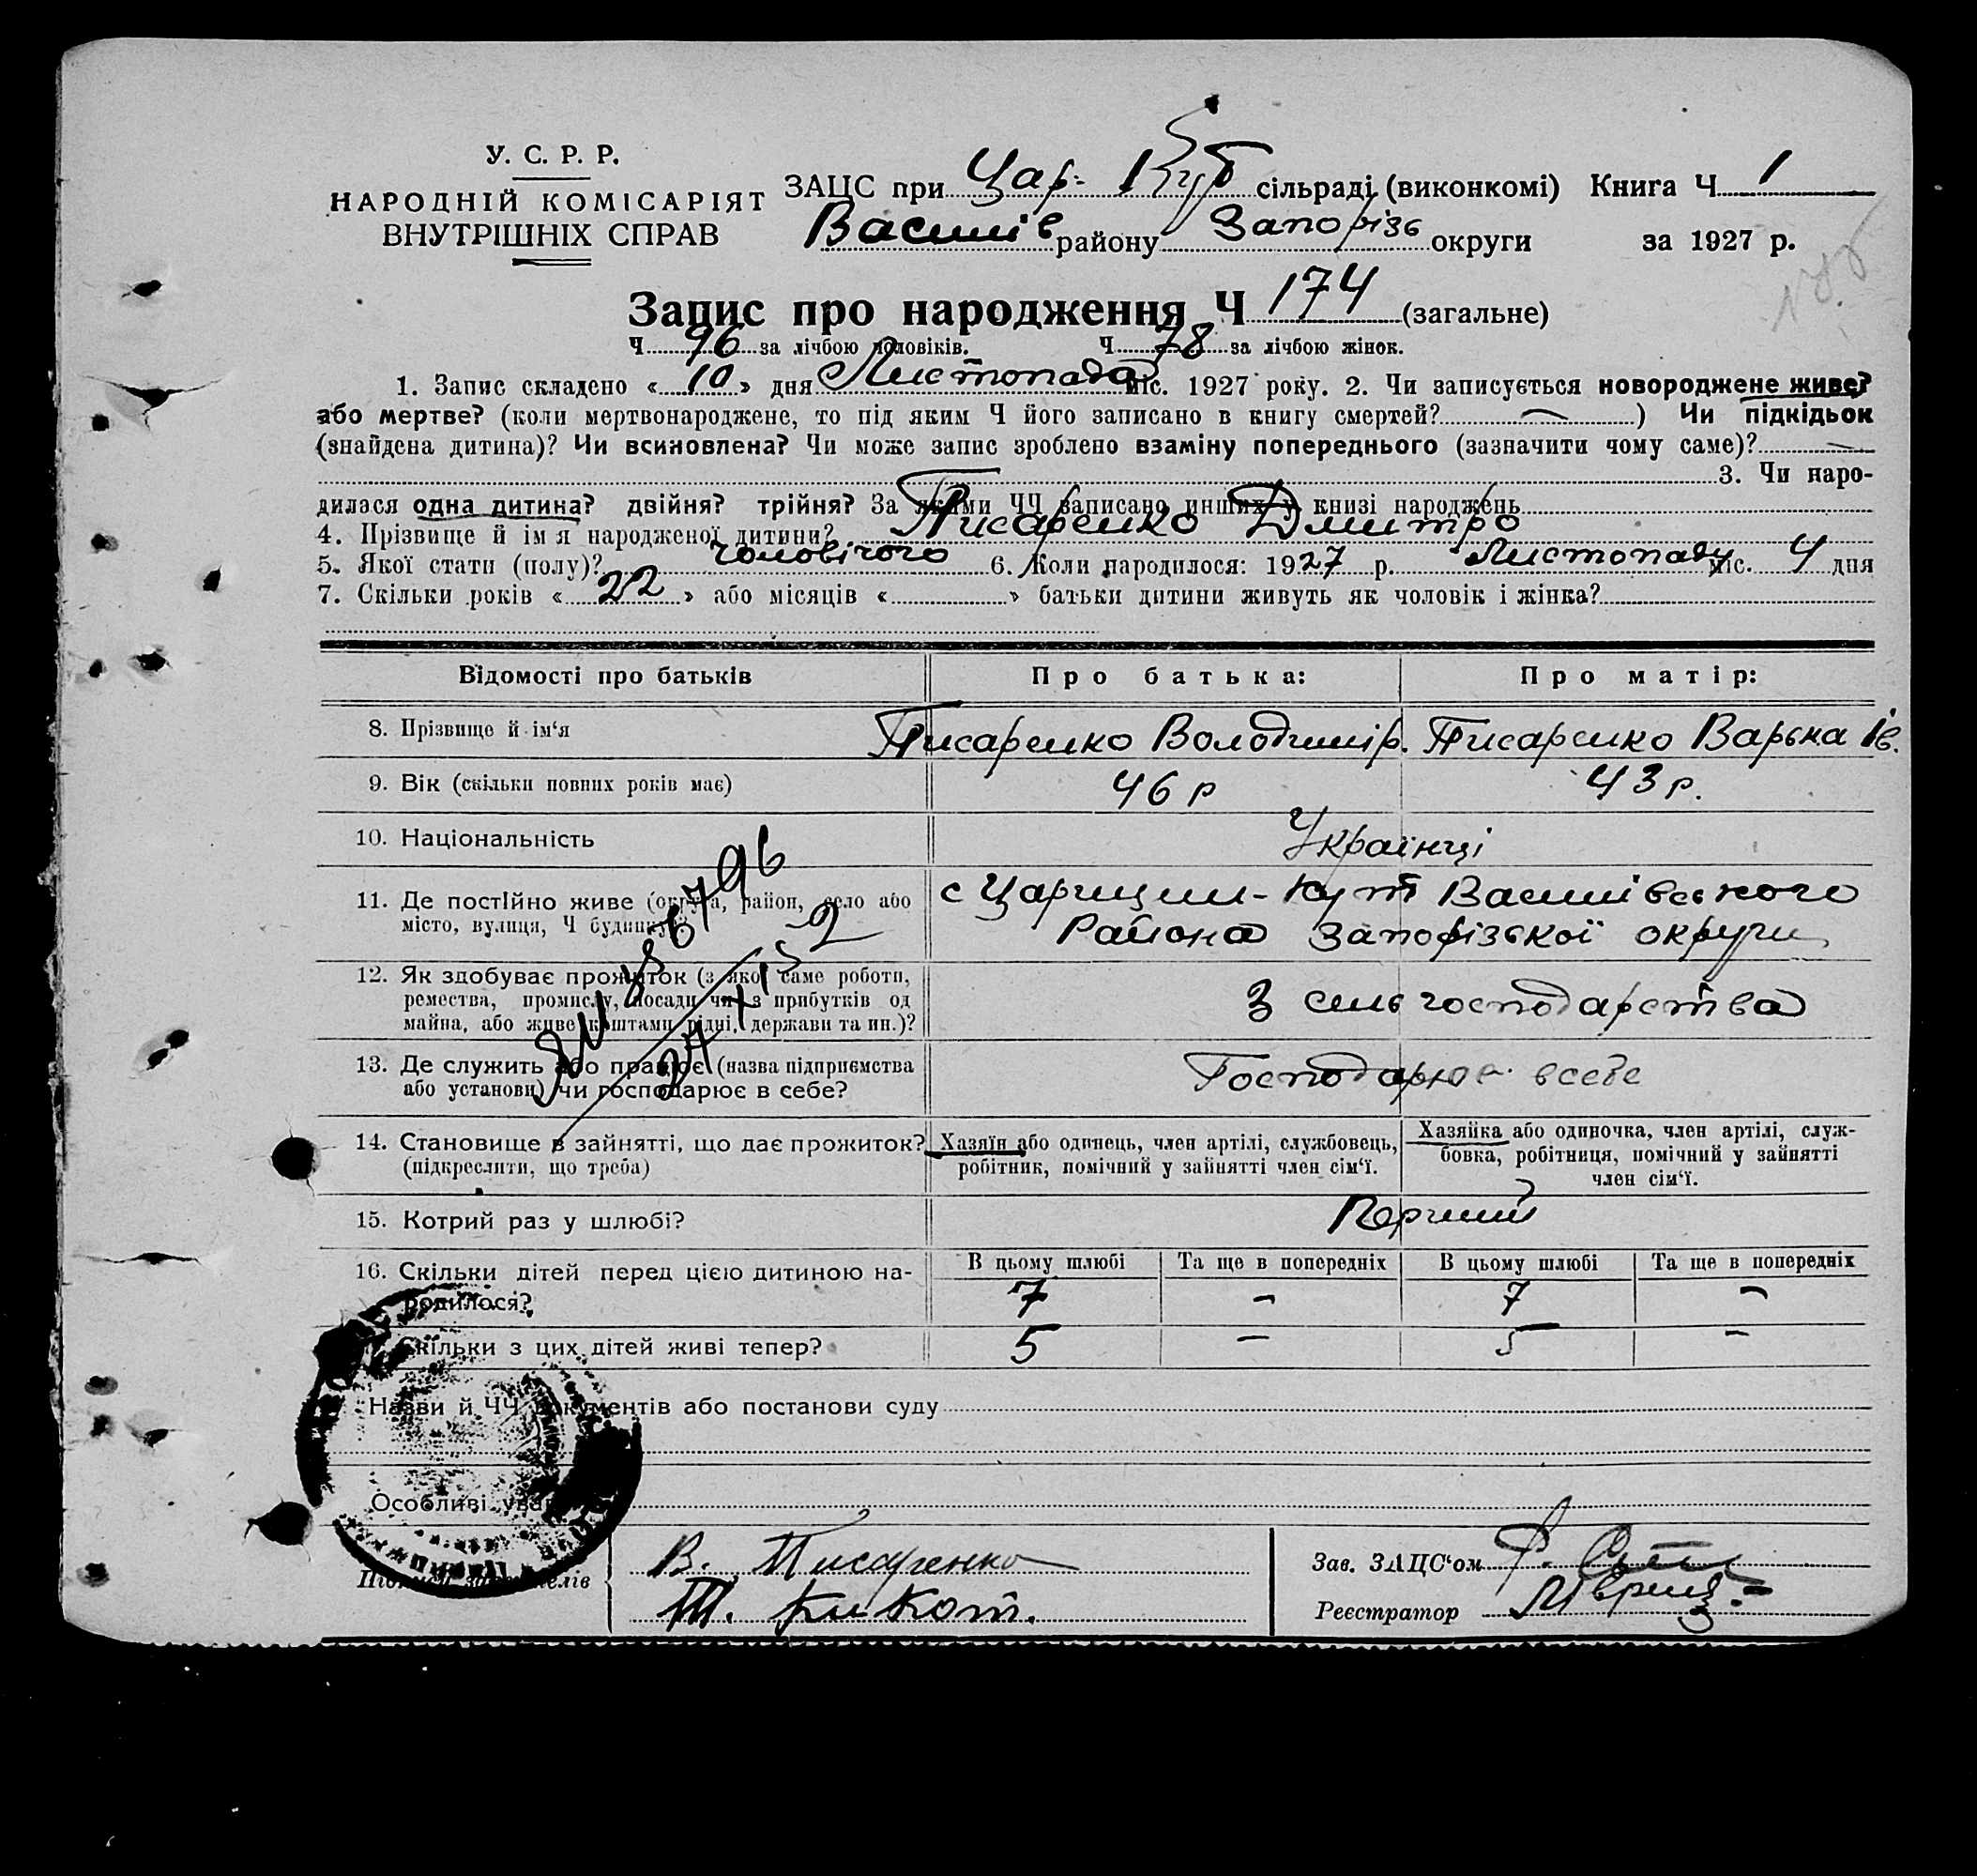 У. С. Р. Р.
НАРОДНІЙ КОМІСАРІЯТ
ВНУТРІШНІХ СПРАВ
ЗАЦС при Цар. Кут сільраді (виконкомі) Книга Ч 1
Василів району Запорізь округи за 1927 р.
Запис про народження Ч 174 (загальне)
Ч 96 за лічбою чоловіків. Ч 78 за лічбою жінок.
1. Запис складено « 10 » дня Листопада міс. 1927 року. 2. Чи записується новороджене живе?
або мертве? (коли мертвонароджене, то під яким Ч його записано в книгу смертей? — ) Чи підкідьок
(знайдена дитина)? Чи всиновлена? Чи може запис зроблено взаміну попереднього (зазначити чому саме)? —
3. Чи наро-
дилася одна дитина? двійня? трійня? За якими ЧЧ записано инших у книзі народжень
4. Прізвище й ім я народженої дитини? Писаренко Дмитро
5. Якої стати (полу)? чоловічого 6. Коли народилося: 1927 р. Листопаду міс. 4 дня
7. Скільки років « 22 » або місяців « » батьки дитини живуть як чоловік і жінка?
Відомості про батьків Про батька: Про матір:
8. Прізвище й ім‘я Писаренко Володимір. Писаренко Варька Ів.
9. Вік (скільки повних років має) 46 р 43 р.
10. Національність Українці
11. Де постійно живе (округа, район, село або
місто, вулиця, Ч будинку)?
с Царицин-Кут Василівського
Района Запорізької округи
12. Як здобуває прожиток (з якої саме роботи,
ремества, промислу, посади чи з прибутків од
майна, або живе коштами рідні, держави та ин.)?
З сельгосподарства
13. Де служить або працює (назва підприємства
або установи) чи господарює в себе?
Господарює всебе
14. Становище в зайнятті, що дає прожиток?
(підкреслити, що треба)
Хазяїн або одинець, член артілі, службовець,
робітник, помічний у зайнятті член сім‘ї.
Хазяйка або одиночка, член артілі, служ-
бовка, робітниця, помічний у зайнятті
член сім‘ї.
15. Котрий раз у шлюбі? Перший
16. Скільки дітей перед цією дитиною на-
родилося?
В цьому шлюбі Та ще в попередніх В цьому шлюбі Та ще в попередніх
7 – 7 –
Скільки з цих дітей живі тепер? 5 – 5 –
Назви й ЧЧ документів або постанови суду
Особливі уваги
Підписи заявителів
В. Писаренко
Т. Кикот.
Зав. ЗАЦС‘ом
Реєстратор